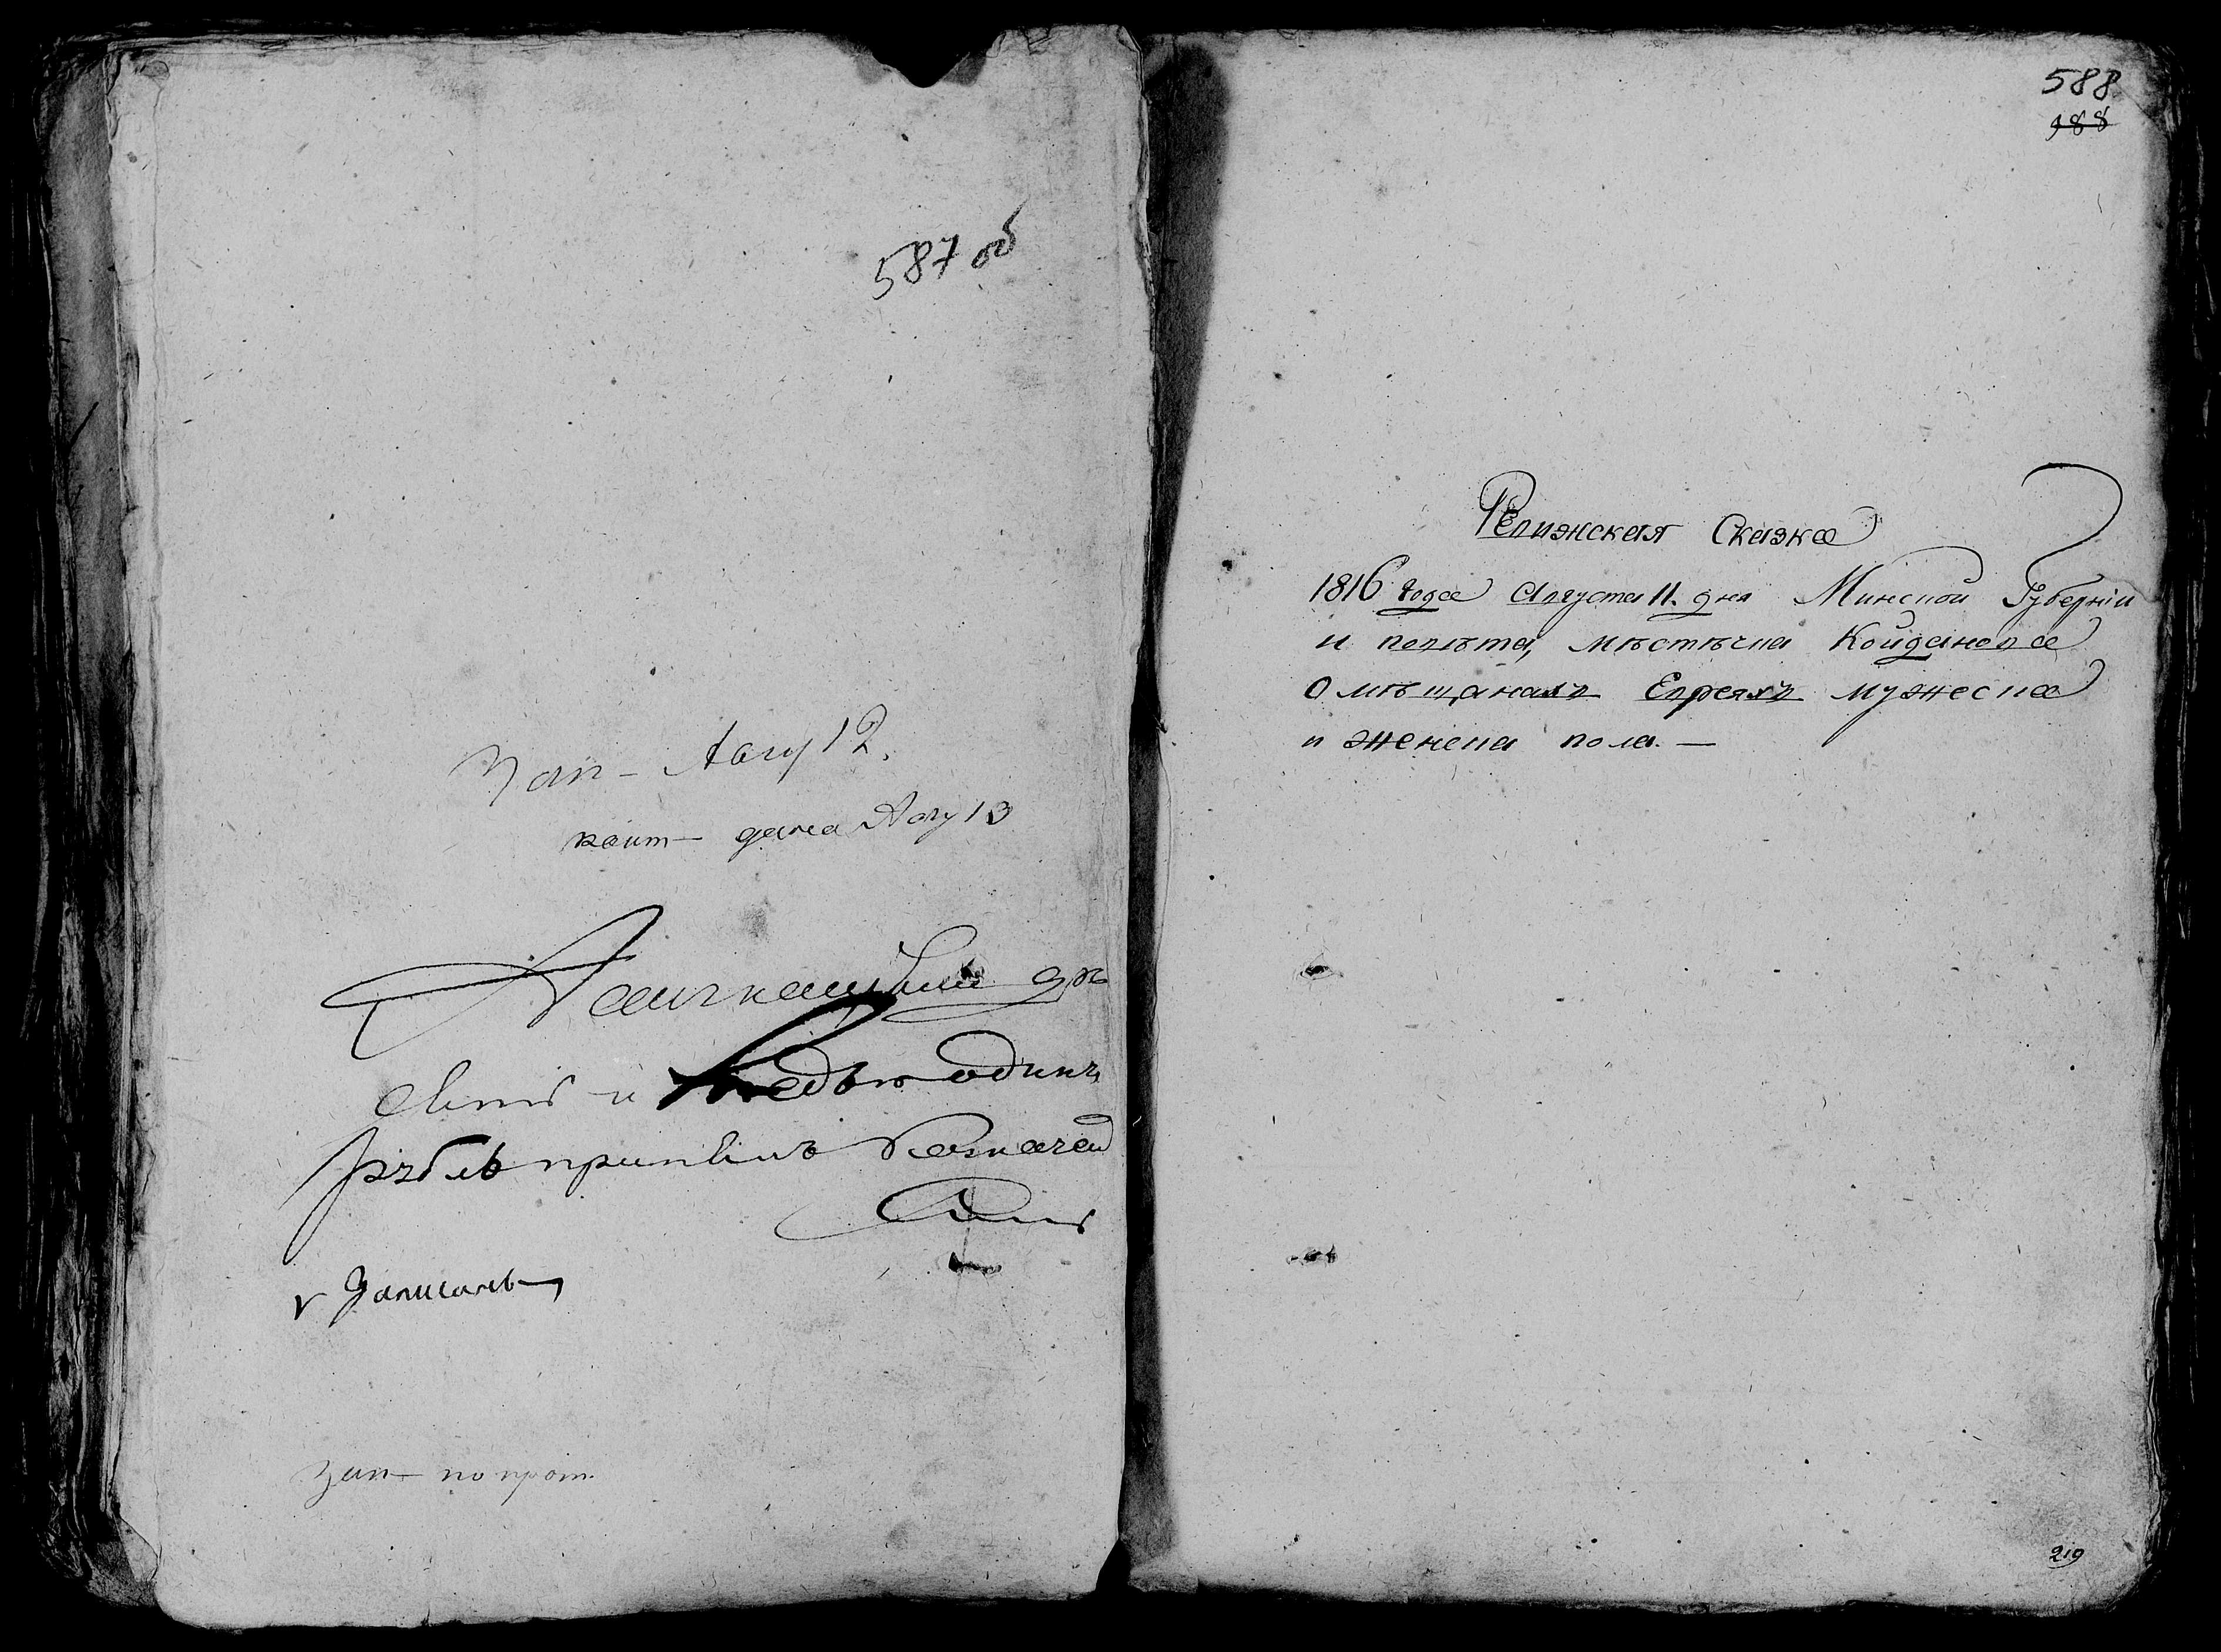 587 об
Зап – Авгу 12.
квит – дана Авгу 13
двѣ
сти и одинъ
рубль принялъ Казначей
Записалъ
зап – по прот.
588
988
Ревижская Сказка
1816 Года Августа 11. дня Минской Губерніи
и повѣта, мѣстѣчка Койданова
О мѣщанахъ Евреяхъ мужеска
и женска пола. —
219